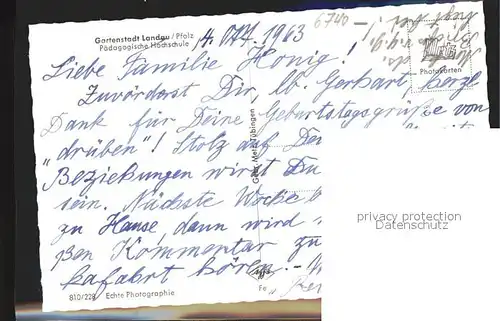 Gartenstadt Landau / Pfalz
Pädagogische Hochschule
4. Okt. 1963
6740
Liebe Familie Honig!
Zuvörderst Dir, lb. Gerhart herzl
Dank für Deine Geburtstagsgrüße von
"drüben"! Stolz auf
Beziehungen wirst Du
sein. Nächste Woche
zu Hause, dann wird
ßen Kommentar zu
kafahrt hören. -
Photokarten
Gebr. Metz, Tübingen
privacy protection
Datenschutz
810/228 Echte Photographie
Fe